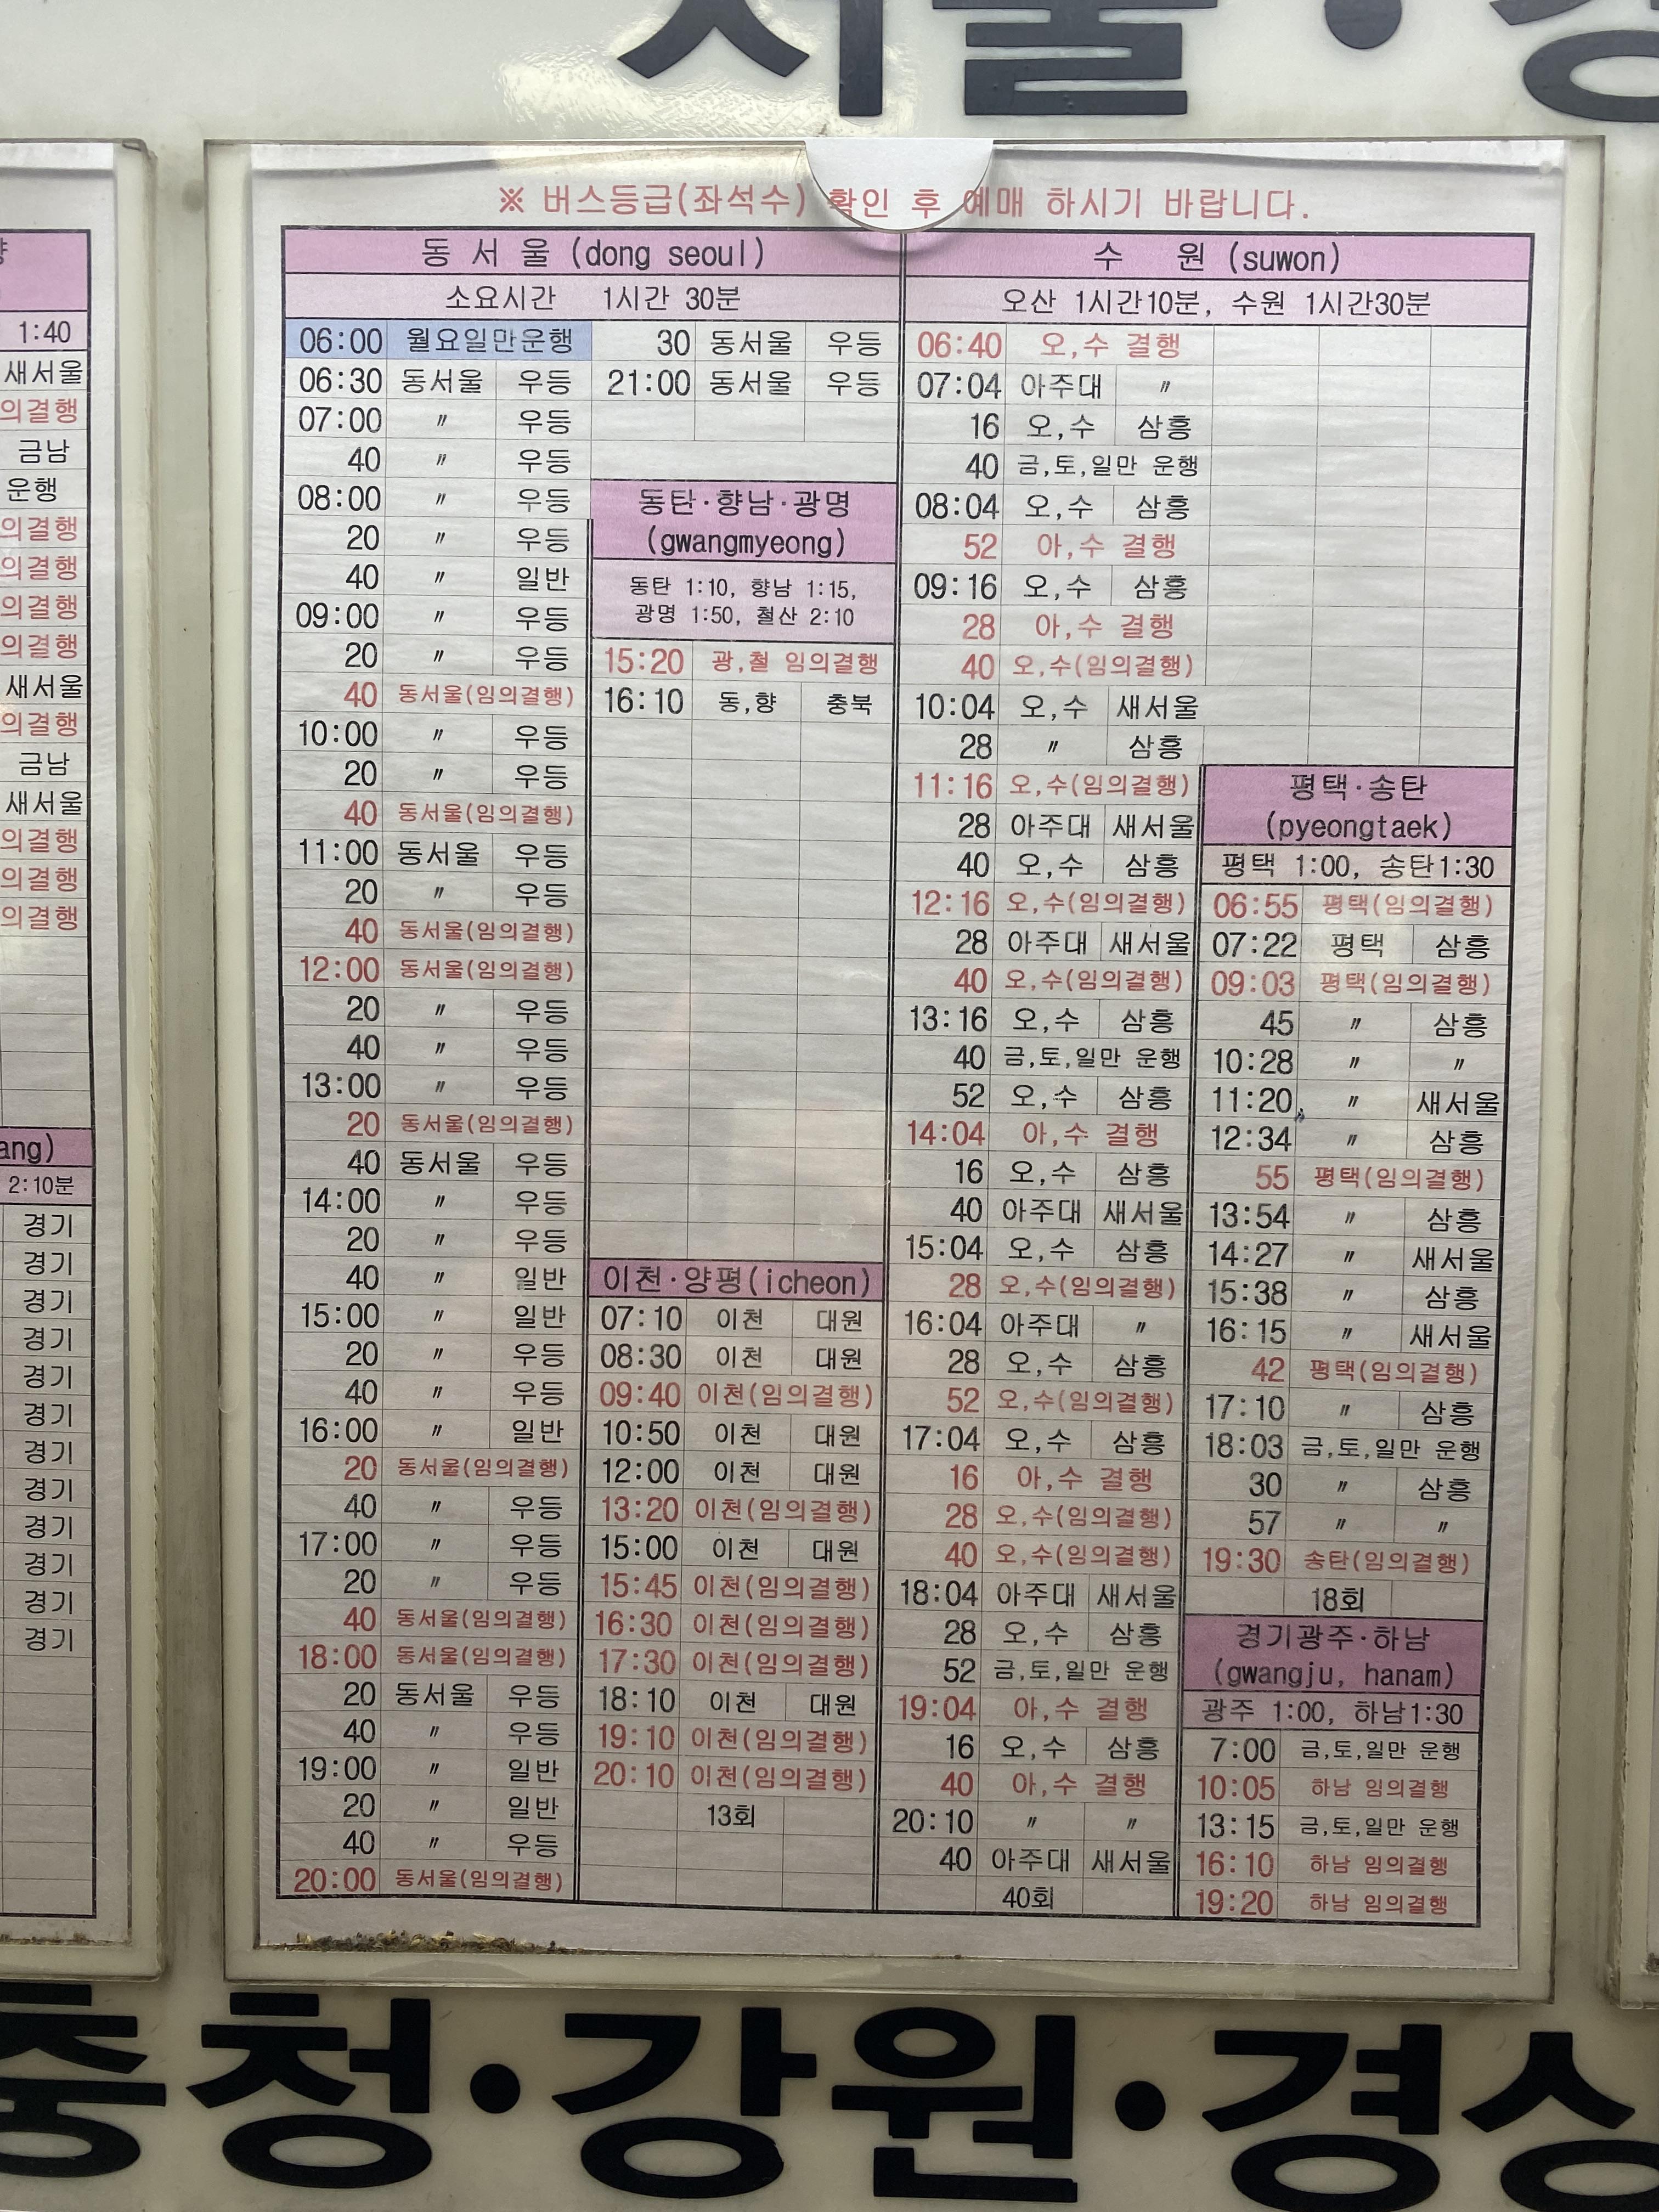 서울·경
※ 버스등급(좌석수) 확인 후 예매 하시기 바랍니다.
1:40
새서울
의결행
금남
운행
의결행
의결행
의결행
의결행
새서울
의결행
금남
새서울
의결행
의결행
의결행
ang)
2:10분
경기
경기
경기
경기
경기
경기
경기
경기
경기
경기
경기
경기
동 서 울 (dong seoul)
소요시간 1시간 30분
06:00 월요일만운행
06:30 동서울 우등
07:00 〃 우등
40 〃 우등
08:00 〃 우등
20 〃 우등
40 〃 일반
09:00 〃 우등
20 〃 우등
40 동서울(임의결행)
10:00 〃 우등
20 〃 우등
40 동서울(임의결행)
11:00 동서울 우등
20 〃 우등
40 동서울(임의결행)
12:00 동서울(임의결행)
20 〃 우등
40 〃 우등
13:00 〃 우등
20 동서울(임의결행)
40 동서울 우등
14:00 〃 우등
20 〃 우등
40 〃 일반
15:00 〃 일반
20 〃 우등
40 〃 우등
16:00 〃 일반
20 동서울(임의결행)
40 〃 우등
17:00 〃 우등
20 〃 우등
40 동서울(임의결행)
18:00 동서울(임의결행)
20 동서울 우등
40 〃 우등
19:00 〃 일반
20 〃 일반
40 〃 우등
20:00 동서울(임의결행)
30 동서울 우등
21:00 동서울 우등
동탄·향남·광명
(gwangmyeong)
동탄 1:10, 향남 1:15,
광명 1:50, 철산 2:10
15:20 광,철 임의결행
16:10 동,향 충북
이천·양평(icheon)
07:10 이천 대원
08:30 이천 대원
09:40 이천(임의결행)
10:50 이천 대원
12:00 이천 대원
13:20 이천(임의결행)
15:00 이천 대원
15:45 이천(임의결행)
16:30 이천(임의결행)
17:30 이천(임의결행)
18:10 이천 대원
19:10 이천(임의결행)
20:10 이천(임의결행)
13회
수 원 (suwon)
오산 1시간10분, 수원 1시간30분
06:40 오,수 결행
07:04 아주대 〃
16 오,수 삼흥
40 금,토,일만 운행
08:04 오,수 삼흥
52 아,수 결행
09:16 오,수 삼흥
28 아,수 결행
40 오,수(임의결행)
10:04 오,수 새서울
28 〃 삼흥
11:16 오,수(임의결행)
28 아주대 새서울
40 오,수 삼흥
12:16 오,수(임의결행)
28 아주대 새서울
40 오,수(임의결행)
13:16 오,수 삼흥
40 금,토,일만 운행
52 오,수 삼흥
14:04 아,수 결행
16 오,수 삼흥
40 아주대 새서울
15:04 오,수 삼흥
28 오,수(임의결행)
16:04 아주대 〃
28 오,수 삼흥
52 오,수(임의결행)
17:04 오,수 삼흥
16 아,수 결행
28 오,수(임의결행)
40 오,수(임의결행)
18:04 아주대 새서울
28 오,수 삼흥
52 금,토,일만 운행
19:04 아,수 결행
16 오,수 삼흥
40 아,수 결행
20:10 〃 〃
40 아주대 새서울
40회
평택·송탄
(pyeongtaek)
평택 1:00, 송탄1:30
06:55 평택(임의결행)
07:22 평택 삼흥
09:03 평택(임의결행)
45 〃 삼흥
10:28 〃 〃
11:20 〃 새서울
12:34 〃 삼흥
55 평택(임의결행)
13:54 〃 삼흥
14:27 〃 새서울
15:38 〃 삼흥
16:15 〃 새서울
42 평택(임의결행)
17:10 〃 삼흥
18:03 금,토,일만 운행
30 〃 삼흥
57 〃 〃
19:30 송탄(임의결행)
18회
경기광주·하남
(gwangju, hanam)
광주 1:00, 하남1:30
7:00 금,토,일만 운행
10:05 하남 임의결행
13:15 금,토,일만 운행
16:10 하남 임의결행
19:20 하남 임의결행
충청·강원·경상